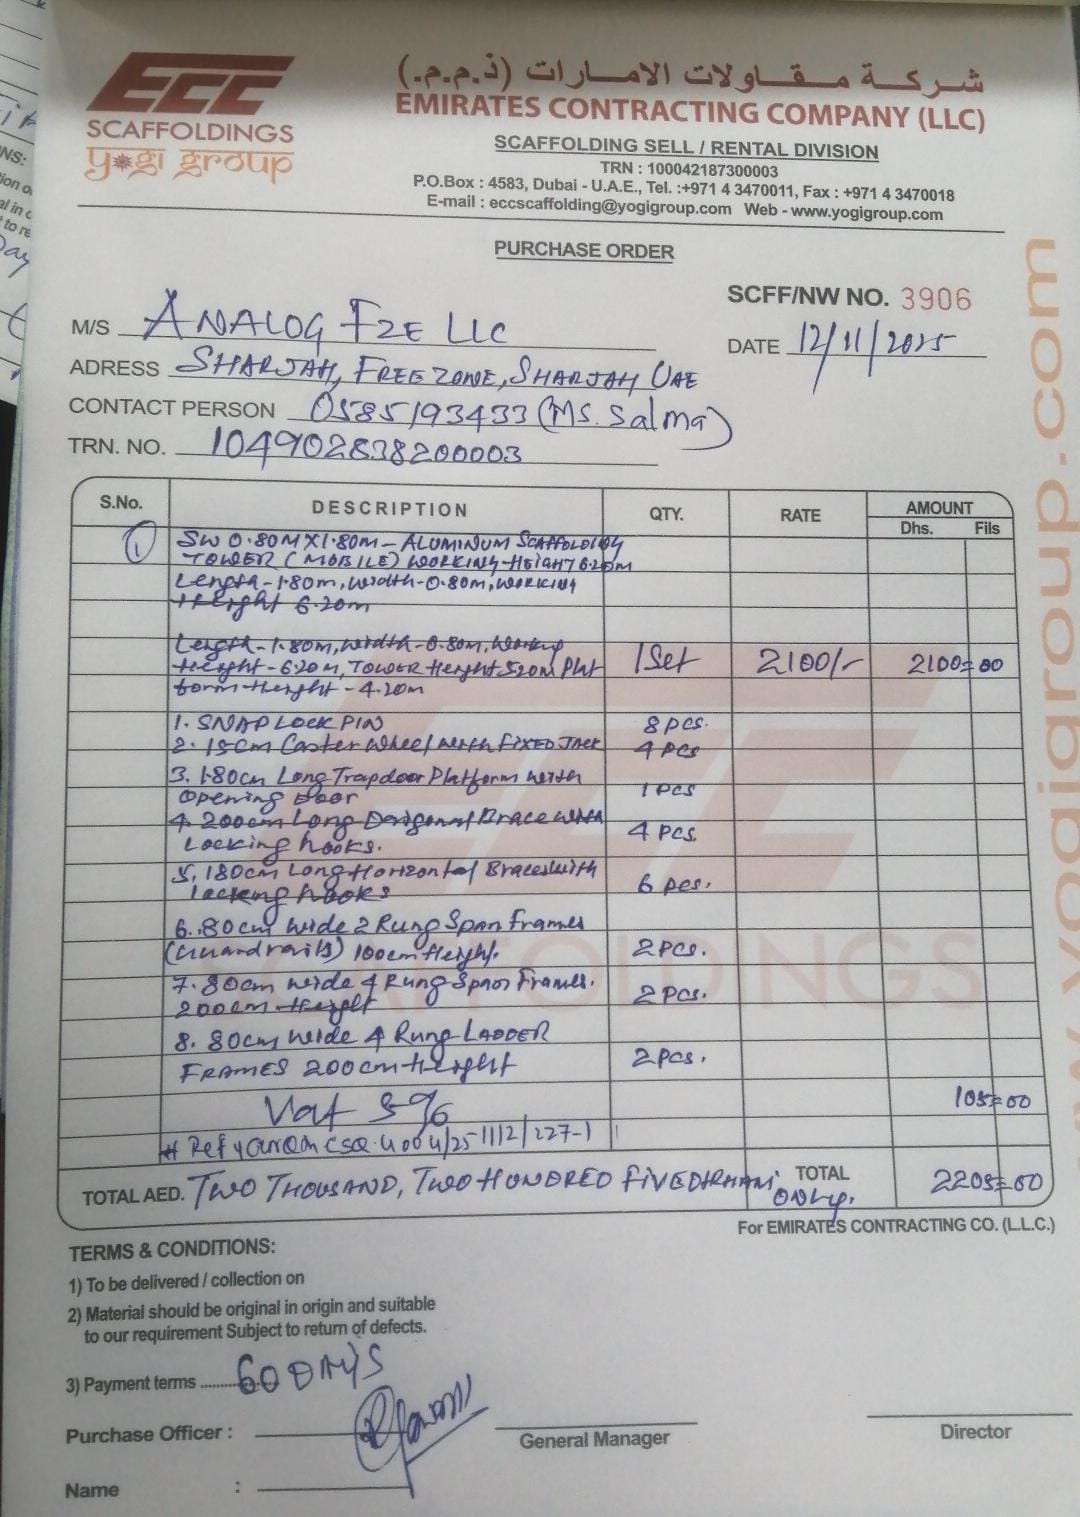 ECC
SCAFFOLDINGS
yogi group
شركة مقاولات الامارات (ذ.م.م.)
EMIRATES CONTRACTING COMPANY (LLC)
SCAFFOLDING SELL / RENTAL DIVISION
TRN : 100042187300003
P.O.Box : 4583, Dubai - U.A.E., Tel. :+971 4 3470011, Fax : +971 4 3470018
E-mail : eccscaffolding@yogigroup.com Web - www.yogigroup.com
PURCHASE ORDER
SCFF/NW NO. 3906
M/S ANALOG FZE LLC
DATE 12/11/2025
ADRESS SHARJAH, FREEZONE, SHARJAH UAE
CONTACT PERSON 0585193433 (MS. Salma)
TRN. NO. 104902838200003
S.No. DESCRIPTION QTY. RATE AMOUNT
Dhs. Fils
1 SW 0.80M X 1.80M - ALUMINUM SCAFFOLDING
TOWER (MOBILE) WORKING HEIGHT 6.20M
Length-1.80m, Width-0.80m, WORKING
Height 6.20m
Length-1.80m, Width-0.80m, Working
Height-6.20m, TOWER Height 5.20m Plat 1 Set 2100/- 2100=00
form Height-4.20m
1. SNAP LOCK PIN 8 pcs.
2. 15cm Caster Wheel with FIXED JACK 4 pcs
3. 180cm Long Trapdoor Platform with
opening Door 1 pcs
4. 200cm Long Daigonal Brace with
Locking hooks. 4 pcs.
5. 180cm Long Horizontal Braces with
locking hooks 6 pcs.
6. 80cm wide 2 Rung Span Frames
(Guardrails) 100cm Height. 2 pcs.
7. 80cm wide 4 Rung Span Frames.
200cm Height 2 pcs.
8. 80cm wide 4 Rung LADDER
FRAMES 200cm Height 2 pcs.
Vat 5% 105=00
# Ref your
TOTAL AED. TWO THOUSAND, TWO HUNDRED FIVE DIRHAM ONLY. TOTAL 2205=00
For EMIRATES CONTRACTING CO. (L.L.C.)
TERMS & CONDITIONS:
1) To be delivered / collection on
2) Material should be original in origin and suitable
to our requirement Subject to return of defects.
3) Payment terms ............... 60 DAYS
Purchase Officer :
General Manager
Director
Name :
www.yogigroup.com